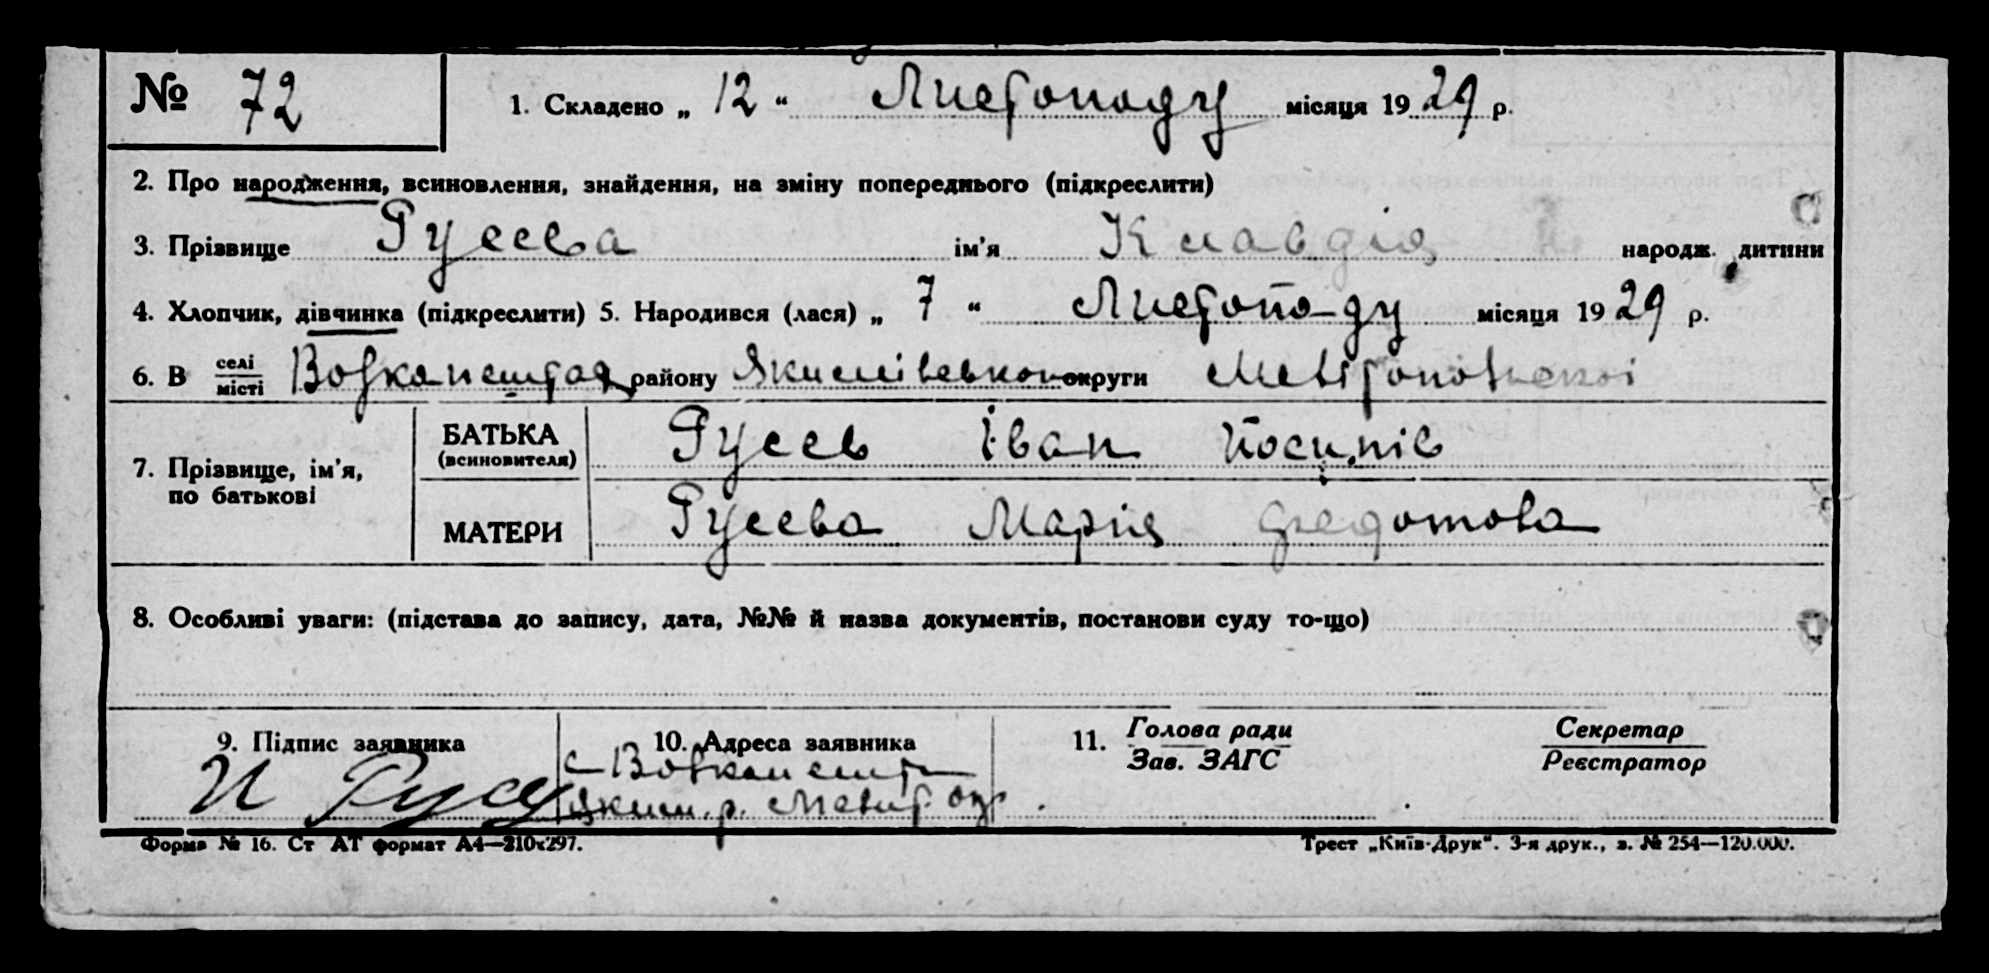 № 72 1. Складено „ 12 “ Листопаду місяця 1929 р.
2. Про народження, всиновлення, знайдення, на зміну попереднього (підкреслити)
3. Прізвище Гусева ім'я Клавдія народж. дитини
4. Хлопчик, дівчинка (підкреслити) 5. Народився (лася) „ 7 “ Листопаду місяця 1929 р.
6. В селі/місті району Якимівськои округи
7. Прізвище, ім'я, по батькові
БАТЬКА (всиновителя) Гусев Іван Йосипів
МАТЕРИ Гусева Марія Федотова
8. Особливі уваги: (підстава до запису, дата, №№ й назва документів, постанови суду то-що)
9. Підпис заявника 10. Адреса заявника 11. Голова ради Секретар
Зав. ЗАГС Реєстратор
И Гусев с
Яким. р. Меліт. окр.
Форма № 16. Ст АТ формат А4—210х297. Трест „Київ-Друк“. 3-я друк., з. № 254—120.000.